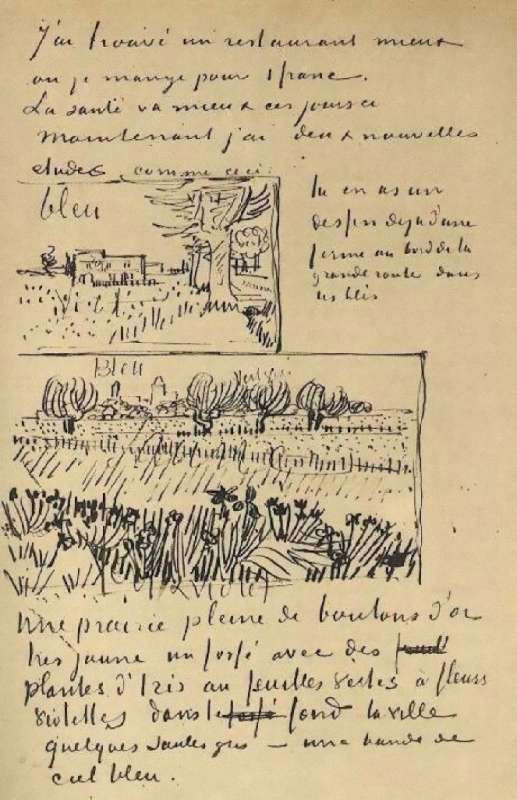 J'ai trouvé un restaurant mieux
ou je mange pour 1 franc.
La santé va mieux ces jours ci
maintenant j'ai deux nouvelles
etudes comme ceci:
bleu
tu en as un
dessin deja d'une
ferme au bord de la
grande route dans
les blés
Bleu
Une prairie pleine de boutons d'or
tres jaune un fossé avec des
plantes d'Iris au feuilles vertes à fleurs
violettes dans le fossé fond la ville
quelques saules gris — une bande de
ciel bleu.